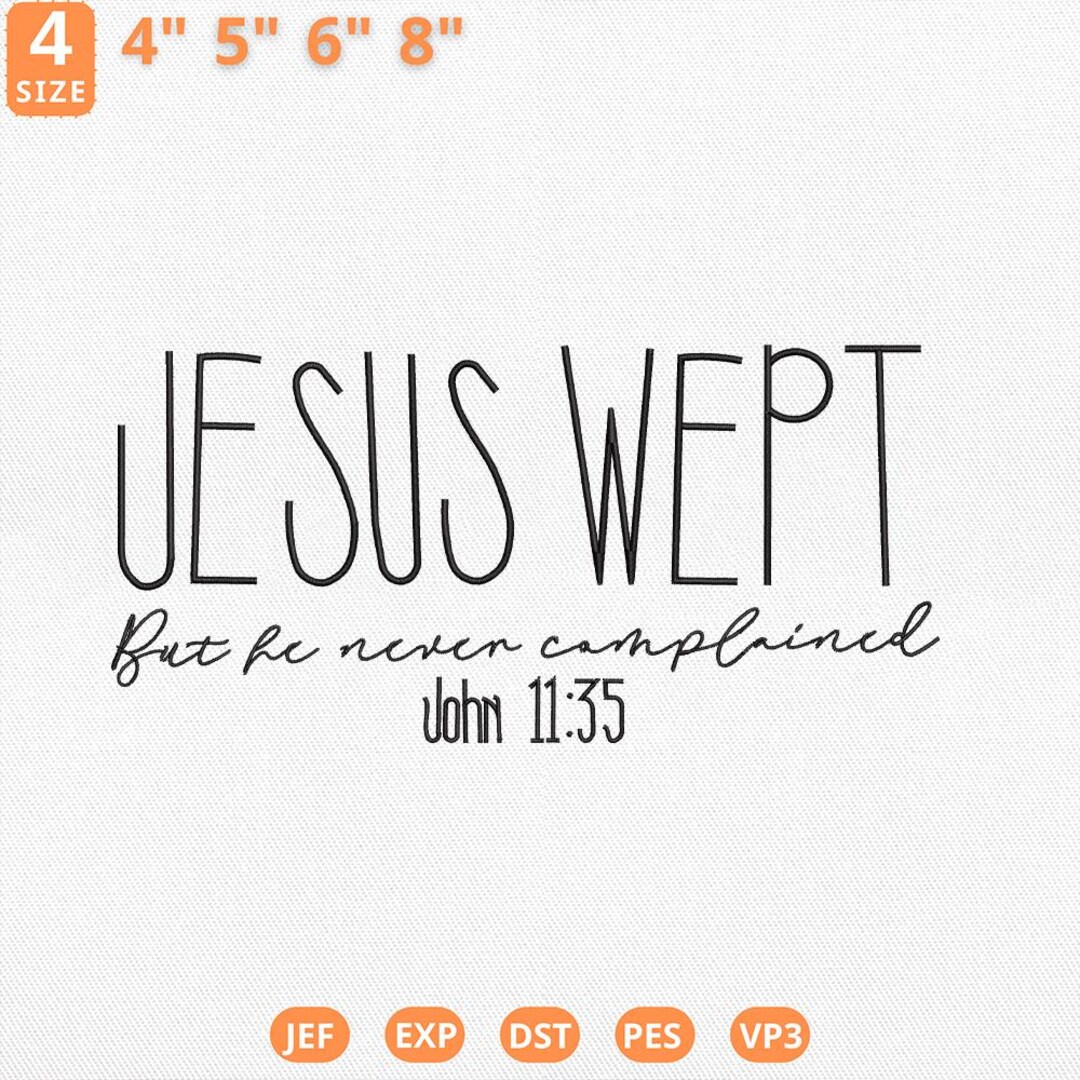 4
SIZE
4" 5" 6" 8"
JESUS WEPT
But he never complained
John 11:35
JEF EXP DST PES VP3